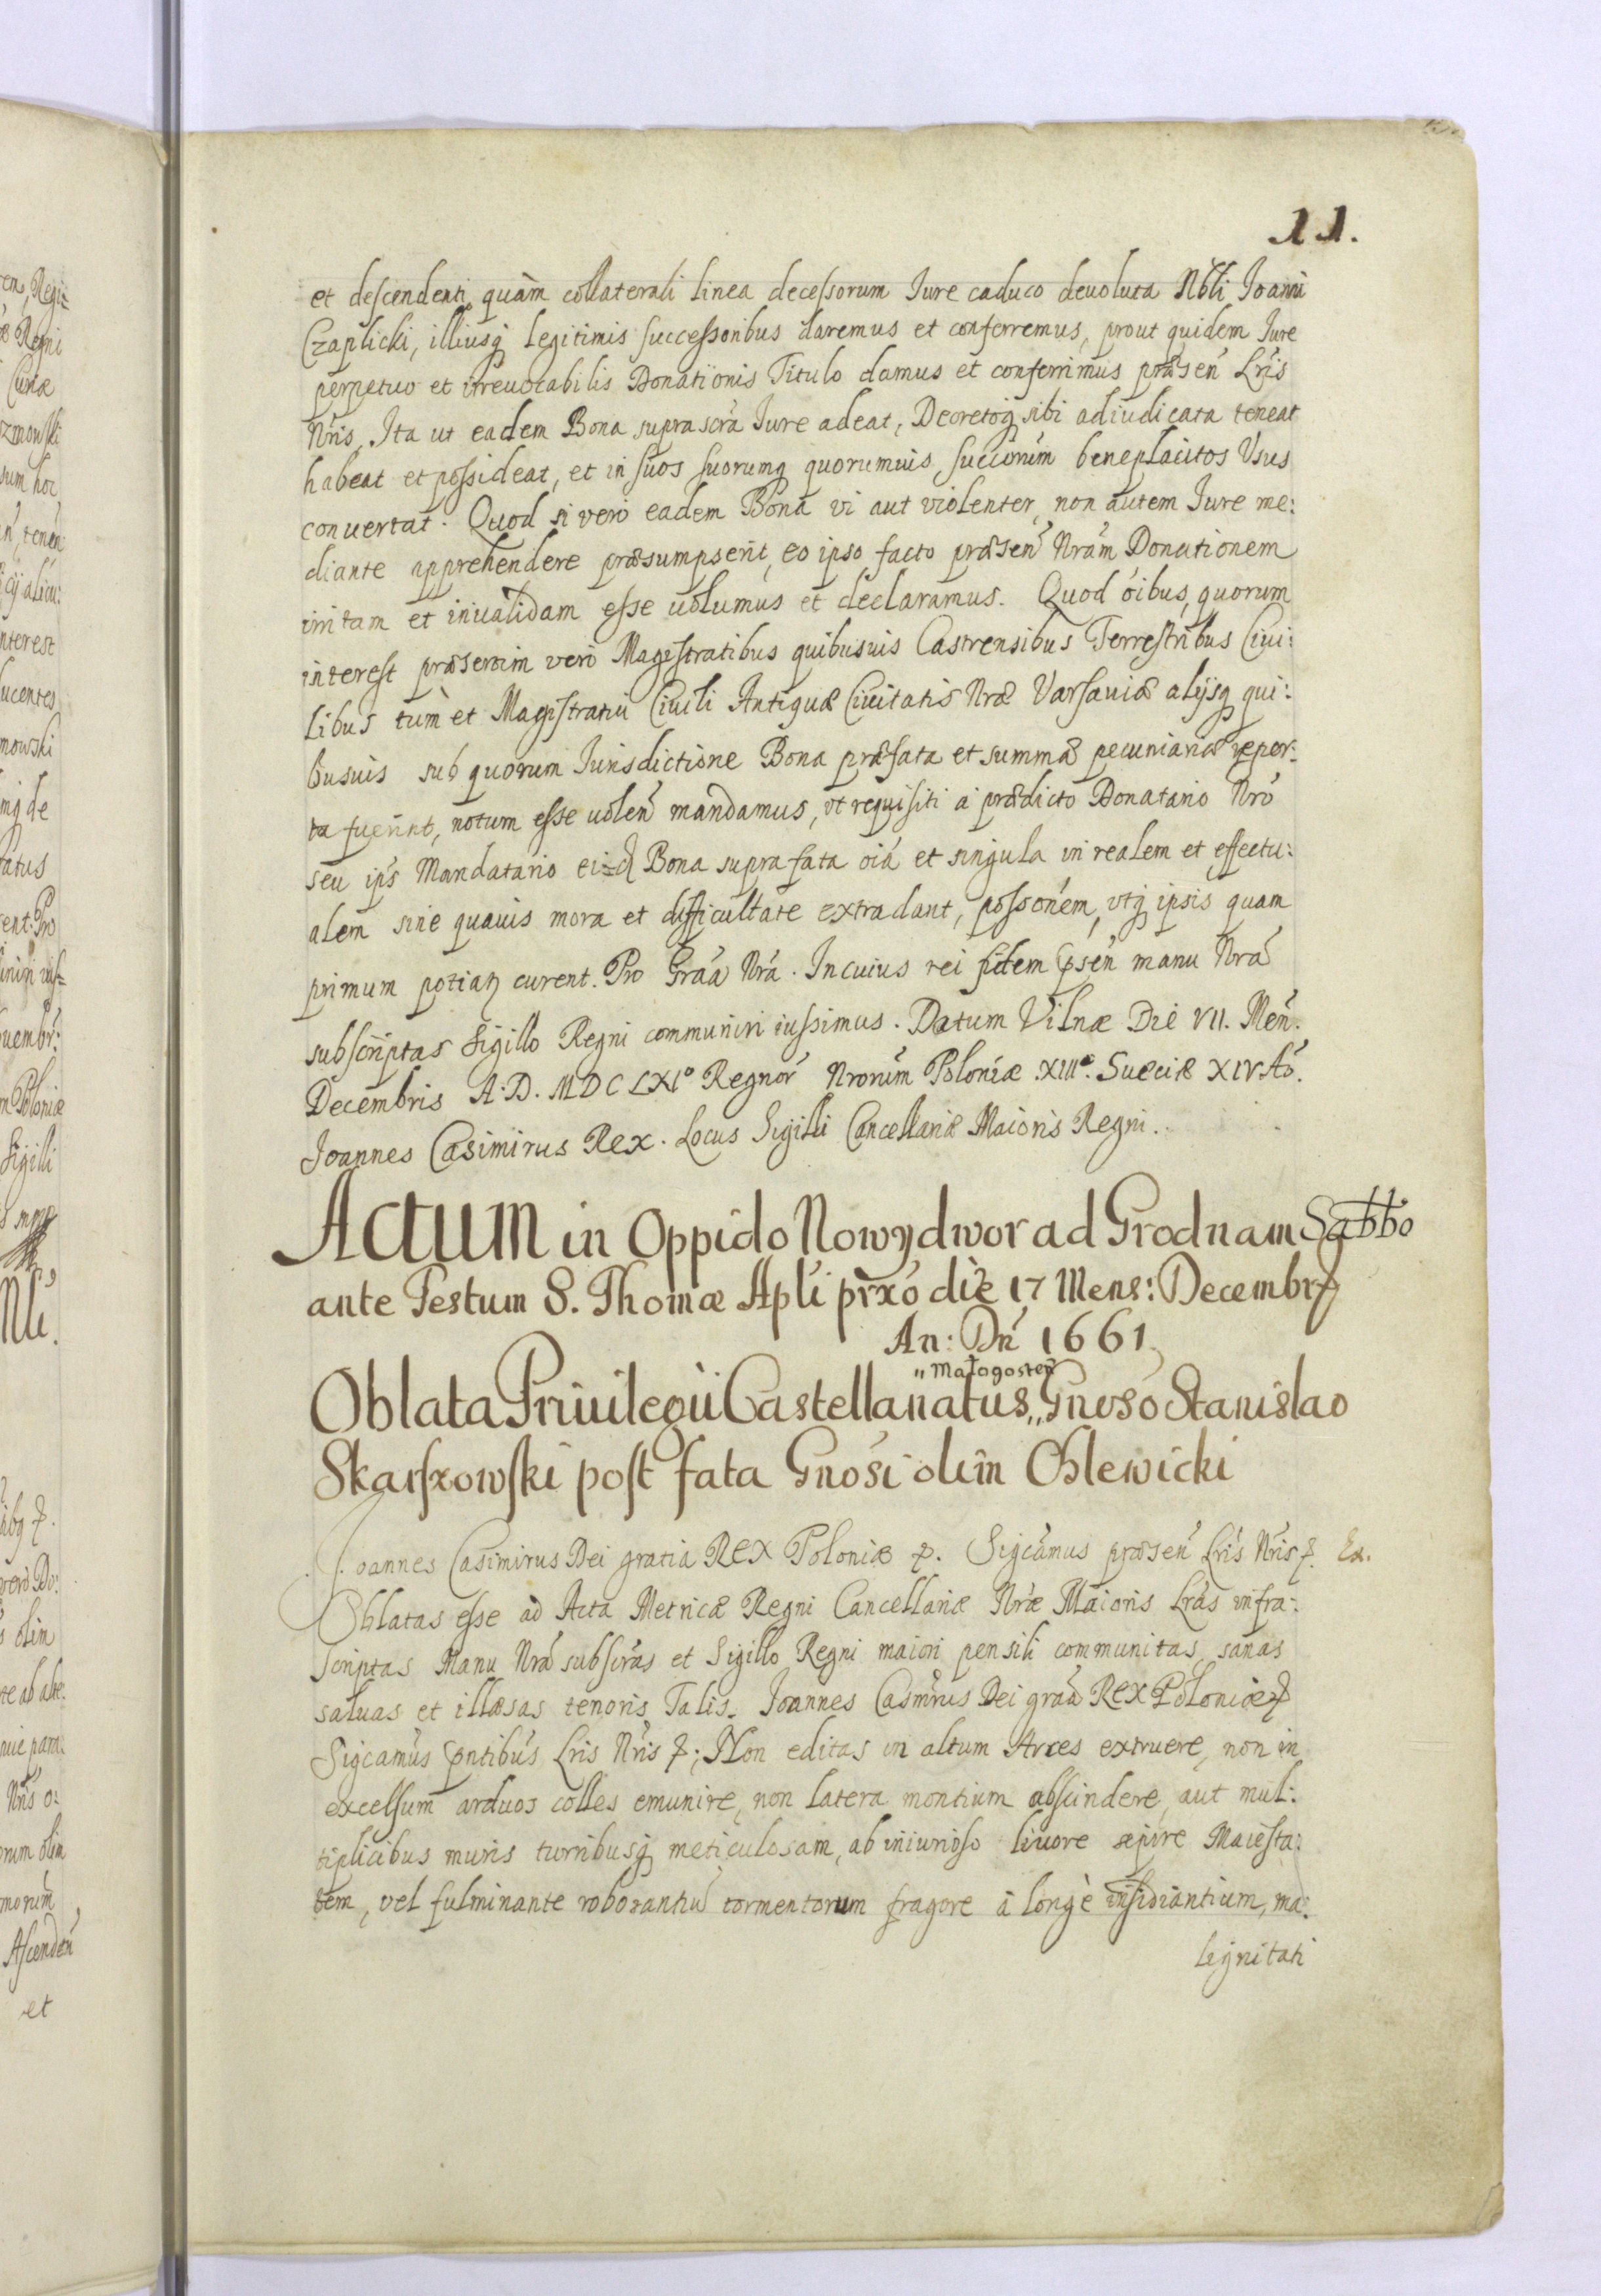 11.
et descendenti quàm collaterali linea decessorum Iure caduco deuoluta Nbli Joanni
Czaplicki, illiusq legitimis successoribus daremus et conferremus, prout quidem Iure
perpetuo et irreuocabilis Donationis Titulo damus et conferrimus præsen Lris
Nris, Ita ut eadem Bona suprascra Iure adeat, Decretoq sibi adiudicata teneat
habeat et possideat, et in suos suorumq quorumuis succorum beneplacitos Usus
conuertat. Quod si vero eadem Bona vi aut violenter, non autem Iure me:
diante apprehendere præsumpserit, eo ipso facto præsen Nram Donationem
irritam et inualidam esse uolumus et declaramus. Quod oibus, quorum
interest præsertim vero Magistratibus quibusuis Castrensibus Terrestribus Ciui:
libus tùm et Magistratui Ciuili Antiquæ Ciuitatis Nræ Varsauiæ alijsq qui:
busuis sub quorum Iurisdictione Bona præfata et summæ pecuniariæ reper:
ta fuerint, notum esse uolen mandamus, ut requisiti à prædicto Donatario Nro
seu ips Mandatario Bona suprafata oia et singula in realem et effectu:
alem sine quauis mora et difficultate extradant, possonem, utq ipsis quam
primum curent. Pro Graa Nra. In cuius rei fidem psen manu Nra
subscriptas Sigillo Regni communiri iussimus. Datum Vilnæ Die VII. Men.
Decembris A. D. MDCLXIº Regnor Nrorum Poloniæ XIIIº. Sueciæ XIV Ao.
Joannes Casimirus Rex. Locus Sigilli Cancellariæ Maioris Regni.
Actum in Oppido Nowydwor ad Grodnam Sabbo
ante Festum S. Thomæ Apli prxo die 17 Mens: Decembr
An: Dni 1661
„Małogosten
Oblata Priuilegij Castellanatus„ Gnoso Stanislao
Skarszowski post fata Gnosi olim Oslewicki
Joannes Casimirus Dei gratia REX Poloniæ &. Sigcamus præsen Lris Nris &. Ex.
Oblatas esse ad Acta Metricæ Regni Cancellariæ Nræ Maioris Lras infra:
scriptas Manu Nra subscras et Sigillo Regni maiori pensili communitas, sanas
saluas et illæsas tenoris Talis. Joannes Casimirus Dei graa REX Poloniæ &
Sigcamus pntibus Lris Nris &; Non editas in altum Arces extruere, non in
excelsum arduos colles emunire, non latera montium abscindere, aut mul:
tiplicibus muris turribusq meticulosam, ab iniurioso liuore sepire Maiesta:
tem, vel fulminante roborantiu tormentorum fragore à longè insidiantium, ma:
lignitati